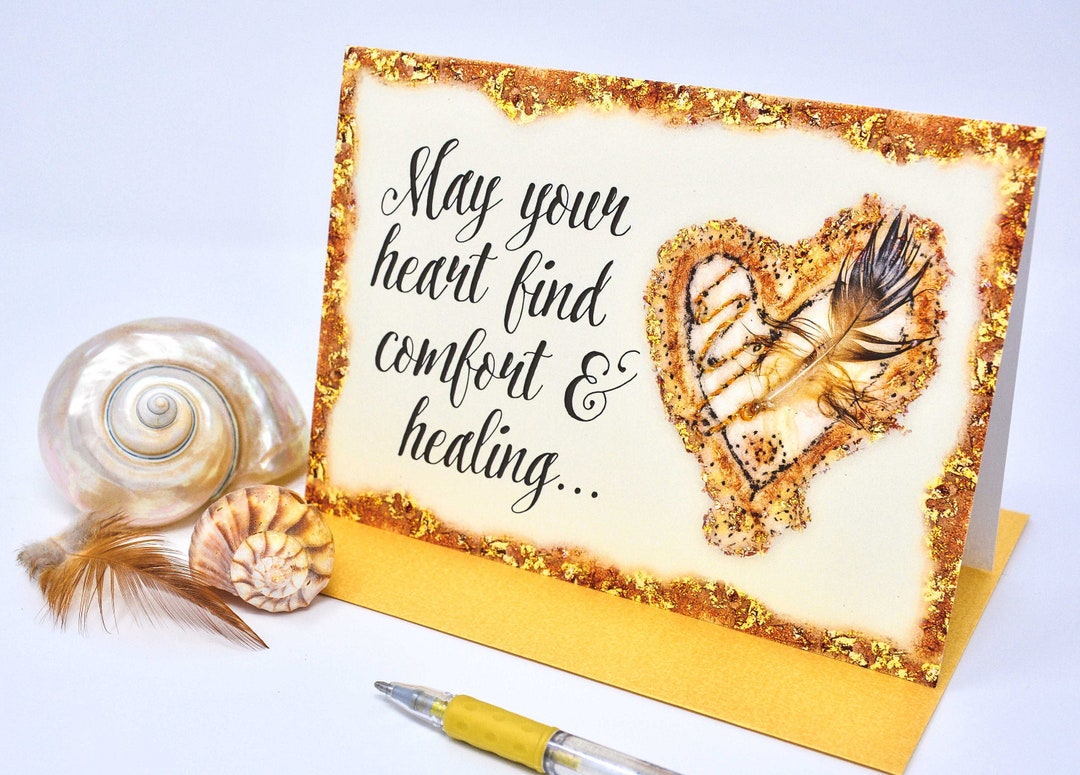 May your
heart find
comfort &
healing...